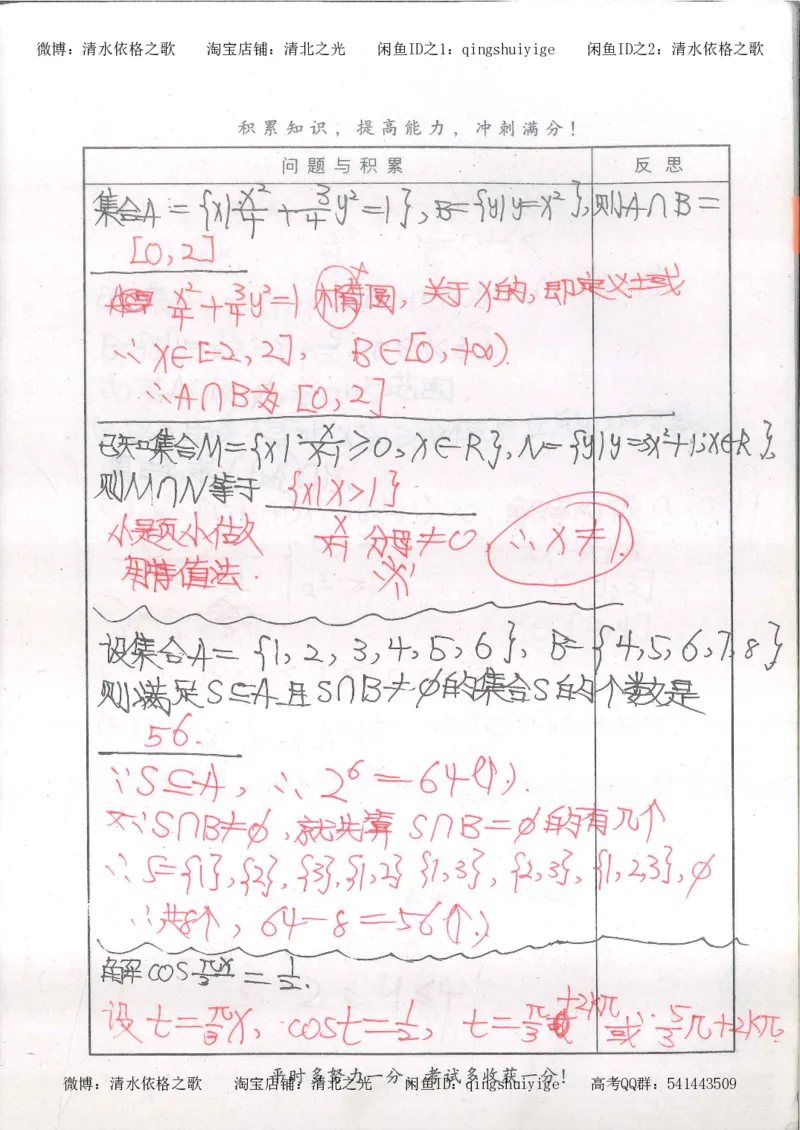 微博：清水依格之歌 淘宝店铺：清北之光 闲鱼ID之1：qingshuiyige 闲鱼ID之2：清水依格之歌
积累知识，提高能力，冲刺满分！
问题与积累 反思
集合A={x|x²/4+3/4y²=1},B={y|y=x²},则A∩B=
[0,2]
x²/4+3/4y²=1椭圆，关于x的，即定义域
∴x∈[-2,2], B∈[0,+∞).
∴A∩B为[0,2]
已知集合M={x|x/x-1≥0,x∈R},N={y|y=3x²+1,x∈R},
则M∩N等于 {x|x>1}
小题小估 x/x-1 分母≠0,∴x≠1.
用特值法.
设集合A={1,2,3,4,5,6},B={4,5,6,7,8}
则满足S⊆A且S∩B≠∅的集合S的个数是
56.
∵S⊆A,∴2⁶=64(个).
又∵S∩B≠∅,就先算S∩B=∅的有几个
∴S={1},{2},{3},{1,2}{1,3},{2,3},{1,2,3},∅
∴共8个,64-8=56(个)
解cosπx/3=1/2.
设t=π/3x,cost=1/2,t=π/3+2kπ或5/3π+2kπ.
平时多努力一分，考试多收获一分！
微博：清水依格之歌 淘宝店铺：清北之光 闲鱼ID之1：qingshuiyige 高考QQ群：541443509